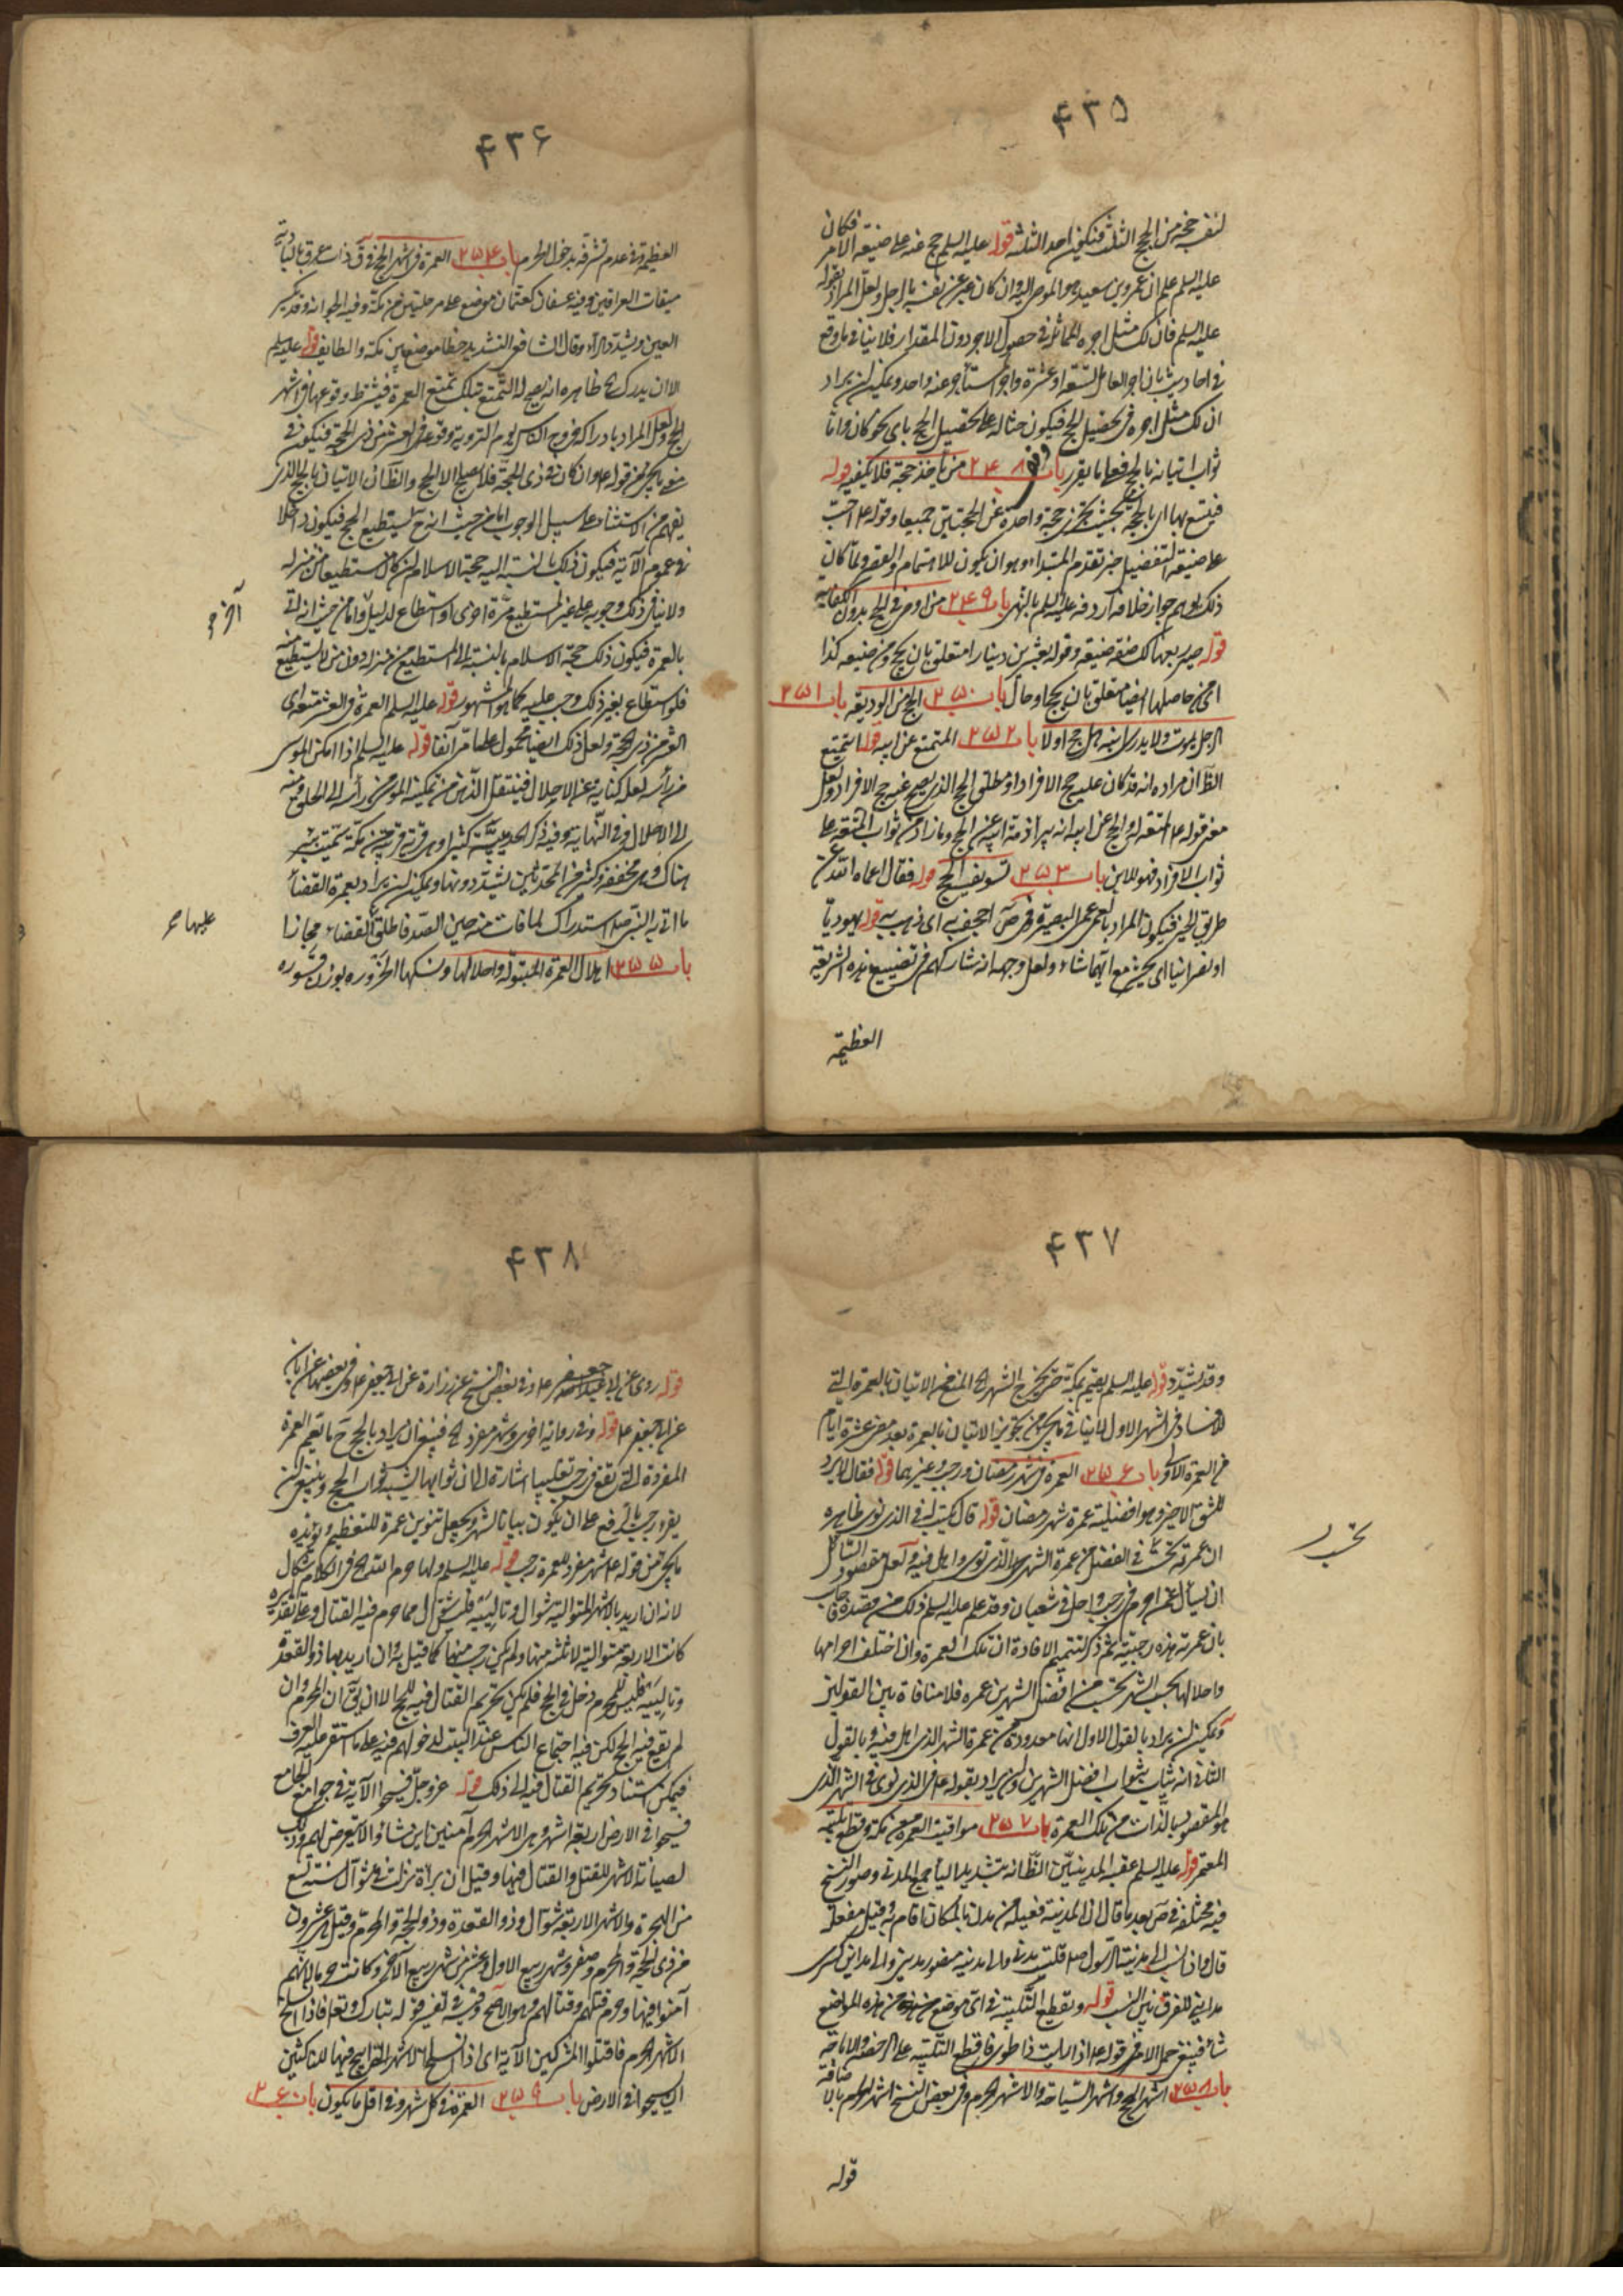 ۴۳۵
لنفسه حجة من الحجج الثلث فتكون احد الثلثة قوله عليه السلم حج عنه على صيغة الامر فكان
عليه السلم علم ان عمرو بن سعيد هو الموصى اليه وان كان عبر عن نفسه بالرجل ولعل المراد بقوله
عليه السلم فان لك مثل اجره المماثل في حصول الاجر دون المقدار فلا ينافي ما وقع
في احاديث بان اجر العامل التسعة او عشرة واجر المستأجر عنه واحد ويمكن ان يراد
ان لك مثل اجره في تحصيل الحج فيكون حثا له على تحصيل الحج باي نحو كان واما
ثواب اتيانه بالحج فعلى ما يقرر باب ۲۴۸ من يأخذ حجة فلا يكفيه قوله
فيتسع بها اى بالحجة بحيث يجزى حجة واحدة عن الحجتين جميعا وقوله ع احب
على صيغة التفضيل خبر تقدم المبتداء وهو ان يكون للاهتمام والقصر ولما كان
ذلك يوهم جواز خلافه اردفه عليه السلم بالنهى باب ۲۴۹ من اوصى في الحج بدون الكفاية
قوله صير بعها لك صفة ضيعة وقوله بعشرين دينارا متعلق بان يحج ومن ضيعه كذا
اى من حاصلها ايضا متعلق بان يحج او حال باب ۲۵۰ الحج من الوديعة باب ۲۵۱
الرجل يموت ولا يدرى ابنه هل حج اولا باب ۲۵۲ المتمتع عن ابيه قوله المتمتع
الظ ان مراده انه قد كان عليه حج الافراد او مطلق الحج الذى يصح عنه حج الافراد ولعل
معنى قوله ع المتعة له والحج عن ابيه انه يبرأ ذمة ابيه عن الحج وما زاد من ثواب المتعة على
ثواب الافراد فهو للابن باب ۲۵۳ تسويف الحج قوله فقال اعماه الله عن
طريق الخير فيكون المراد بالعمى عمى البصيرة وفي ص اجحف به اى ذهب به قوله يهوديا
او نصرانيا اى يحشر مع ايهما شاء ولعل وجهه انه شاركهم في تضييع هذه الشريعة
العظيمة
۴۳۶
العظيمة وفي عدم تشرفه بدخول الحرم باب ۲۵۴ العمرة في اشهر الحج قوله ذات عرق بالبادية
ميقات العراقيين وفيه عسفان كعثمان موضع على مرحلتين من مكة وفيه الجعرانة وقد تكسر
العين وتشدد الراء وقال الشافعى التشديد خطا موضع بين مكة والطايف قوله عليه السلم
الا ان يدرك الخ ظاهره انه يصح له التمتع بتلك تمتع العمرة فيشترط وقوعها في اشهر
الحج ولعل المراد بادراكه خروج الناس يوم التروية وقوعها في العشر من ذى الحجة فيكون في
معنى ما يجئ من قوله ع وان كان في ذى الحجة فلا يصلح الا الحج والظ ان الاتيان بالحج الذى
يفهم من الاستثناء على سبيل الوجوب اما من حيث انه ح يستطيع الحج فيكون داخلا
في عموم الآية فيكون ذلك بالنسبة اليه حجة الاسلام ان كان مستطيعا من منزله
ولا ينافي ذلك وجوبه على غير المستطيع مرة اخرى لو استطاع لدليل واما من حيث انه اتى
بالعمرة فيكون ذلك حجة الاسلام بالنسبة الى المستطيع من منزله دون من لا يستطيع منه
فلو استطاع بغير ذلك وجب عليه كما هو المشهور قوله عليه السلم العمرة في العشر متعة اى
العشر من ذى الحجة ولعل ذلك ايضا محمول على ما مر آنفا قوله عليه السلم اذا امكن الموسى
من رأسه لعله كناية عن الاحلال فينتقل الذهن من تمكينه الموسى من رأسه الى الحلق ومنه
الى الاحلال وفي النهاية وفيه ذكر الحديبية كثيرا وهى قرية قريبة من مكة سميت ببئر
هناك وهى مخففة وكثير من المحدثين يشددونها ويمكن ان يراد بعمرة القضاء
ما اتى به النبى صلعم استدراك لما فات منه حين الصد فاطلق القضاء مجازا
باب ۲۵۵ اهلال العمرة المبتولة واحلالها ونسكها الحزورة بوزن قسورة
آخر
عليها
۴۳۷
وقد تشدد قوله عليه السلم يعتم بمكة حتى يخرج الشهر الخ المنع من الاتيان بالعمرة التى
للافساد في الشهر الاول لا ينافي ما يجئ من تجويز الاتيان بالعمرة بعد مضى عشرة ايام
من العمرة الاولى باب ۲۵۶ العمرة في شهر رمضان ورجب وغيرهما قوله فقال لا يرد
للشق الاخير وهو افضلية عمرة شهر رمضان قوله قال يكتب له في الذى نوى ظاهره
ان عمرته تحسب في الفضل من عمرة الشهر الذى نوى واهل فيه ولعل مقصود السائل
ان يسأل عمن احرم في رجب واحل في شعبان وقد علم عليه السلم ذلك من قصده فاجاب
بان عمرته هذه رجبية ثم ذكر لتتميم الافادة ان تلك العمرة وان اختلف احرامها
واحلالها بحسب الشهر تحسب من افضل الشهرين عمرة فلا منافاة بين القولين
ويمكن ان يراد بالقول الاول انها معدودة من عمرة الشهر الذى اهل فيه وبالقول
الثانى انه يثاب بثواب افضل الشهرين وان يراد بقوله ع في الذى نوى في الشهر الذى
هو المقصود بالذات من تلك العمرة باب ۲۵۷ مواقيت العمرة من مكة وقطع تلبية
المعتمر قوله عليه السلم عقبة المدنيين الظ انه بتشديد الياء جمع المدنى وصور النسخ
فيه مختلفة في ص بعد ما قال ان المدينة فعيلة من مدن بالمكان اقام به وقيل مفعلة
قال واذا نسبت الى مدينة الرسول صلعم قلت مدنى والى مدينة منصور مدينى والى مداين كسرى
مدائنى للفرق بين النسب قوله ويقطع التلبية في اى موضع من هذه المواضع
شاء فينبغى حمل الامر في قوله ع اذا رايت ذا طوى فاقطع التلبية على الرخصة والاباحة
باب ۲۵۸ اشهر الحج واشهر السياحة والاشهر الحرم وفي بعض النسخ اشهر الحرم بالاضافة
قوله
۴۳۸
قوله روى عن ابى جعفر ع وفي بعض النسخ عن زرارة عن ابى جعفر ع وفي بعضها عن ابان
عن ابى جعفر ع قوله وفي رواية اخرى وشهر مفرد الخ فينبغى ان يراد بالحج ح ما يعم العمرة
المفردة التى تقع في رجب تغليبا اشارة الى ان ثوابها يشبه ثواب الحج وينبغى ان
يقرء رجب بالرفع على ان يكون بيانا لشهر ويجعل تنوين عمرة للتعظيم ويؤيده
ما يجئ من قوله ع شهر مفرد للعمرة رجب قوله عليه السلم ولما حرم الله الخ في الكلام اشكال
لانه ان اريد بالاشهر المتوالية شوال وتالييه فليس شوال مما حرم فيه القتال وعلى تقديره
كانت الاربعة متوالية لا ثلثة منها ولم يكن رجب منها كما قيل به وان اريد بها ذو القعدة
وتالييه فليس للمحرم دخل في الحج فلم يكن تحريم القتال فيه للحج الا ان يق ان المحرم وان
لم يقع فيه الحج لكن فيه اجتماع الناس عند البيت لدخولهم فيه على ما استقر عليه العرف
فيمكن استناد تحريم القتال فيه الى ذلك قوله عزوجل فسيحوا الآية في جوامع الجامع
فسيحوا في الارض اربعة اشهر وهى الاشهر الحرم آمنين اين شاؤا لا يتعرض لهم وذلك
لصيانة الاشهر للقتل والقتال فيها وقيل ان براءة نزلت في شوال سنة تسع
من الهجرة والاشهر الاربعة شوال وذو القعدة وذو الحجة والمحرم وقيل هى عشرون
من ذى الحجة والمحرم وصفر وشهر ربيع الاول وعشر من شهر ربيع الآخر وكانت حرما لانهم
آمنوا فيها وحرم قتلهم وقتالهم وهو الاصح وفيه في تفسير قوله تبارك وتعالى فاذا انسلخ
الاشهر الحرم فاقتلوا المشركين الآية اى اذا انسلخ الاشهر التى ابيح فيها للناكثين
ان يسيحوا في الارض باب ۲۵۹ العمرة في كل شهر وفي اقل ما يكون باب ۲۶۰